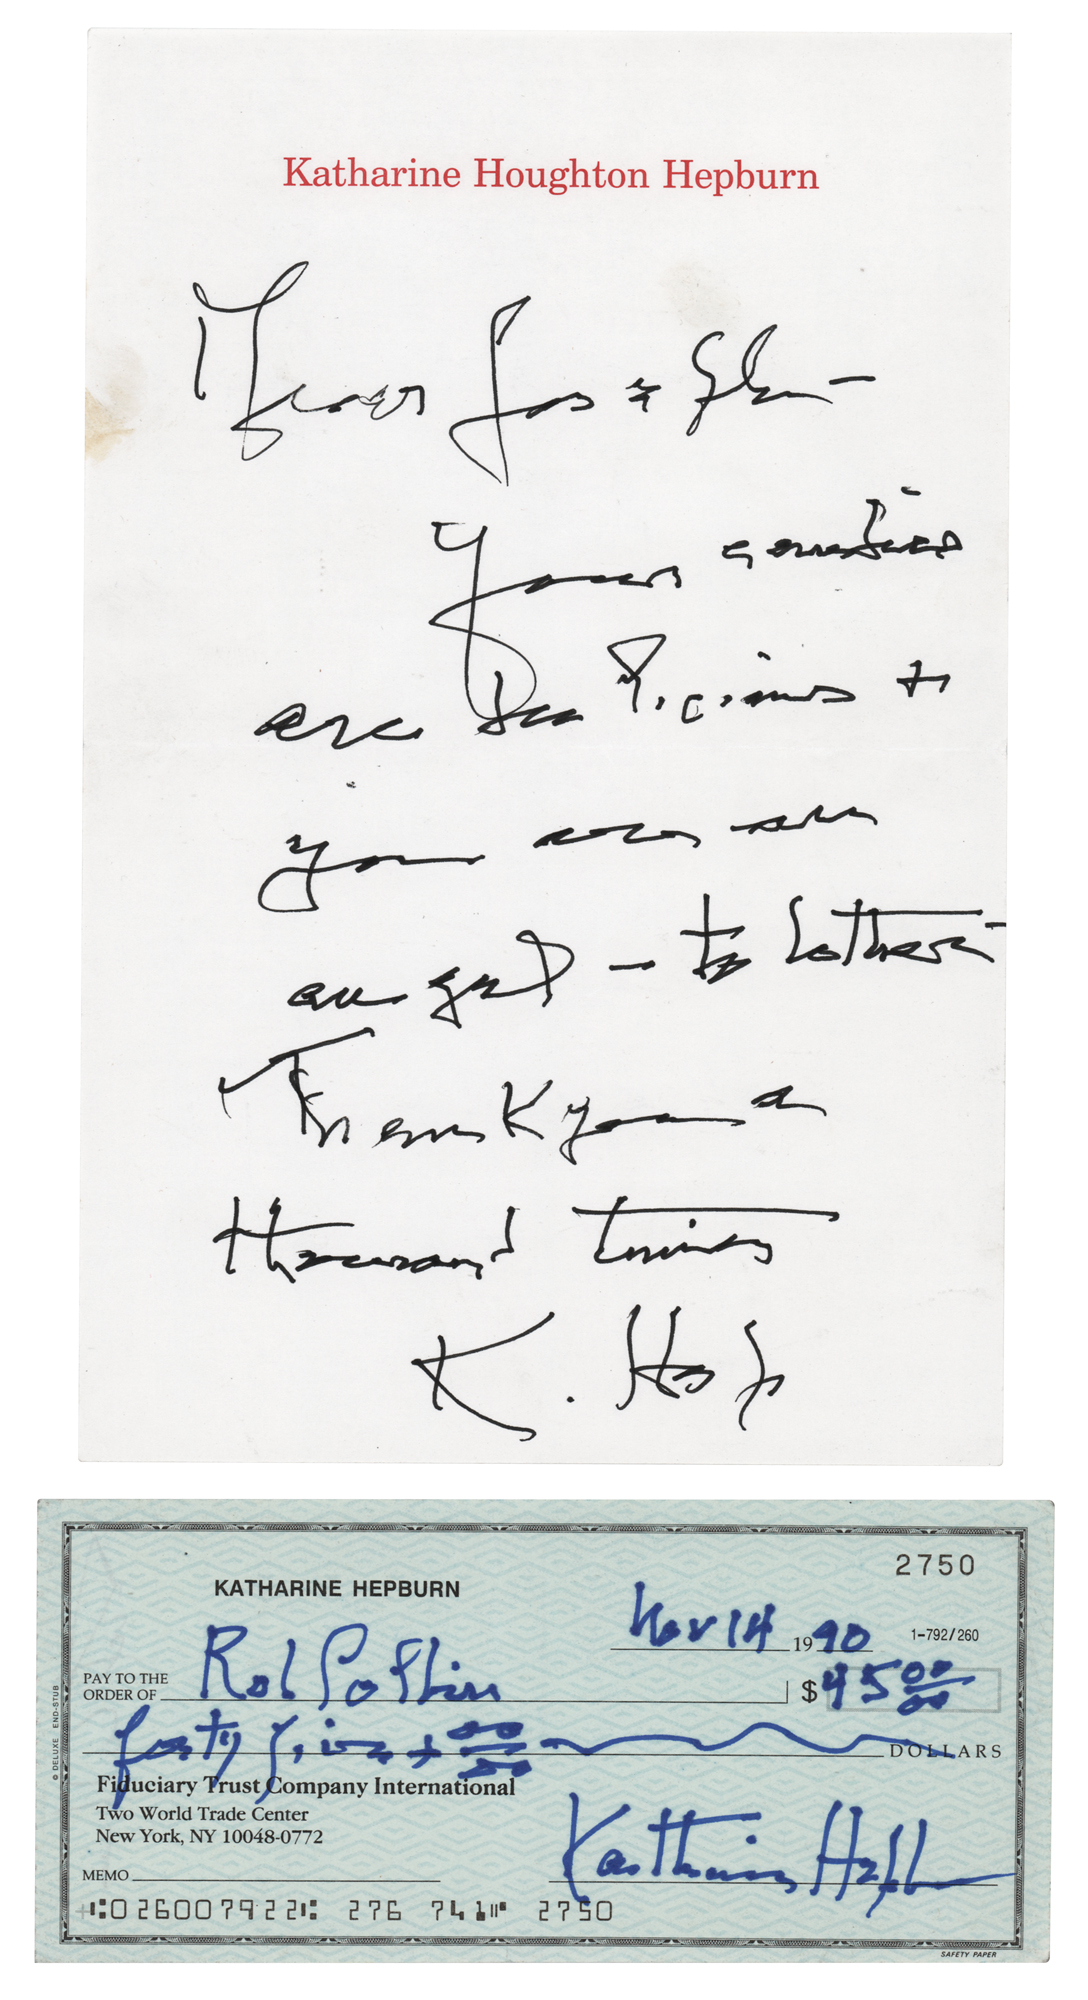 Katharine Houghton Hepburn
Dear Jos + Glen –
Your candies
are delicious +
you are an
angel – to bother –
Thank you a
thousand times
K. Hep
2750
KATHARINE HEPBURN
Nov 14 1990
1-792/260
PAY TO THE
ORDER OF Rob $45 00/00
forty five + 00/00 DOLLARS
© DELUXE END-STUB
Fiduciary Trust Company International
Two World Trade Center
New York, NY 10048-0772
Katharine Hepburn
MEMO
⑆026007922⑆ 276 741⑈ 2750
SAFETY PAPER